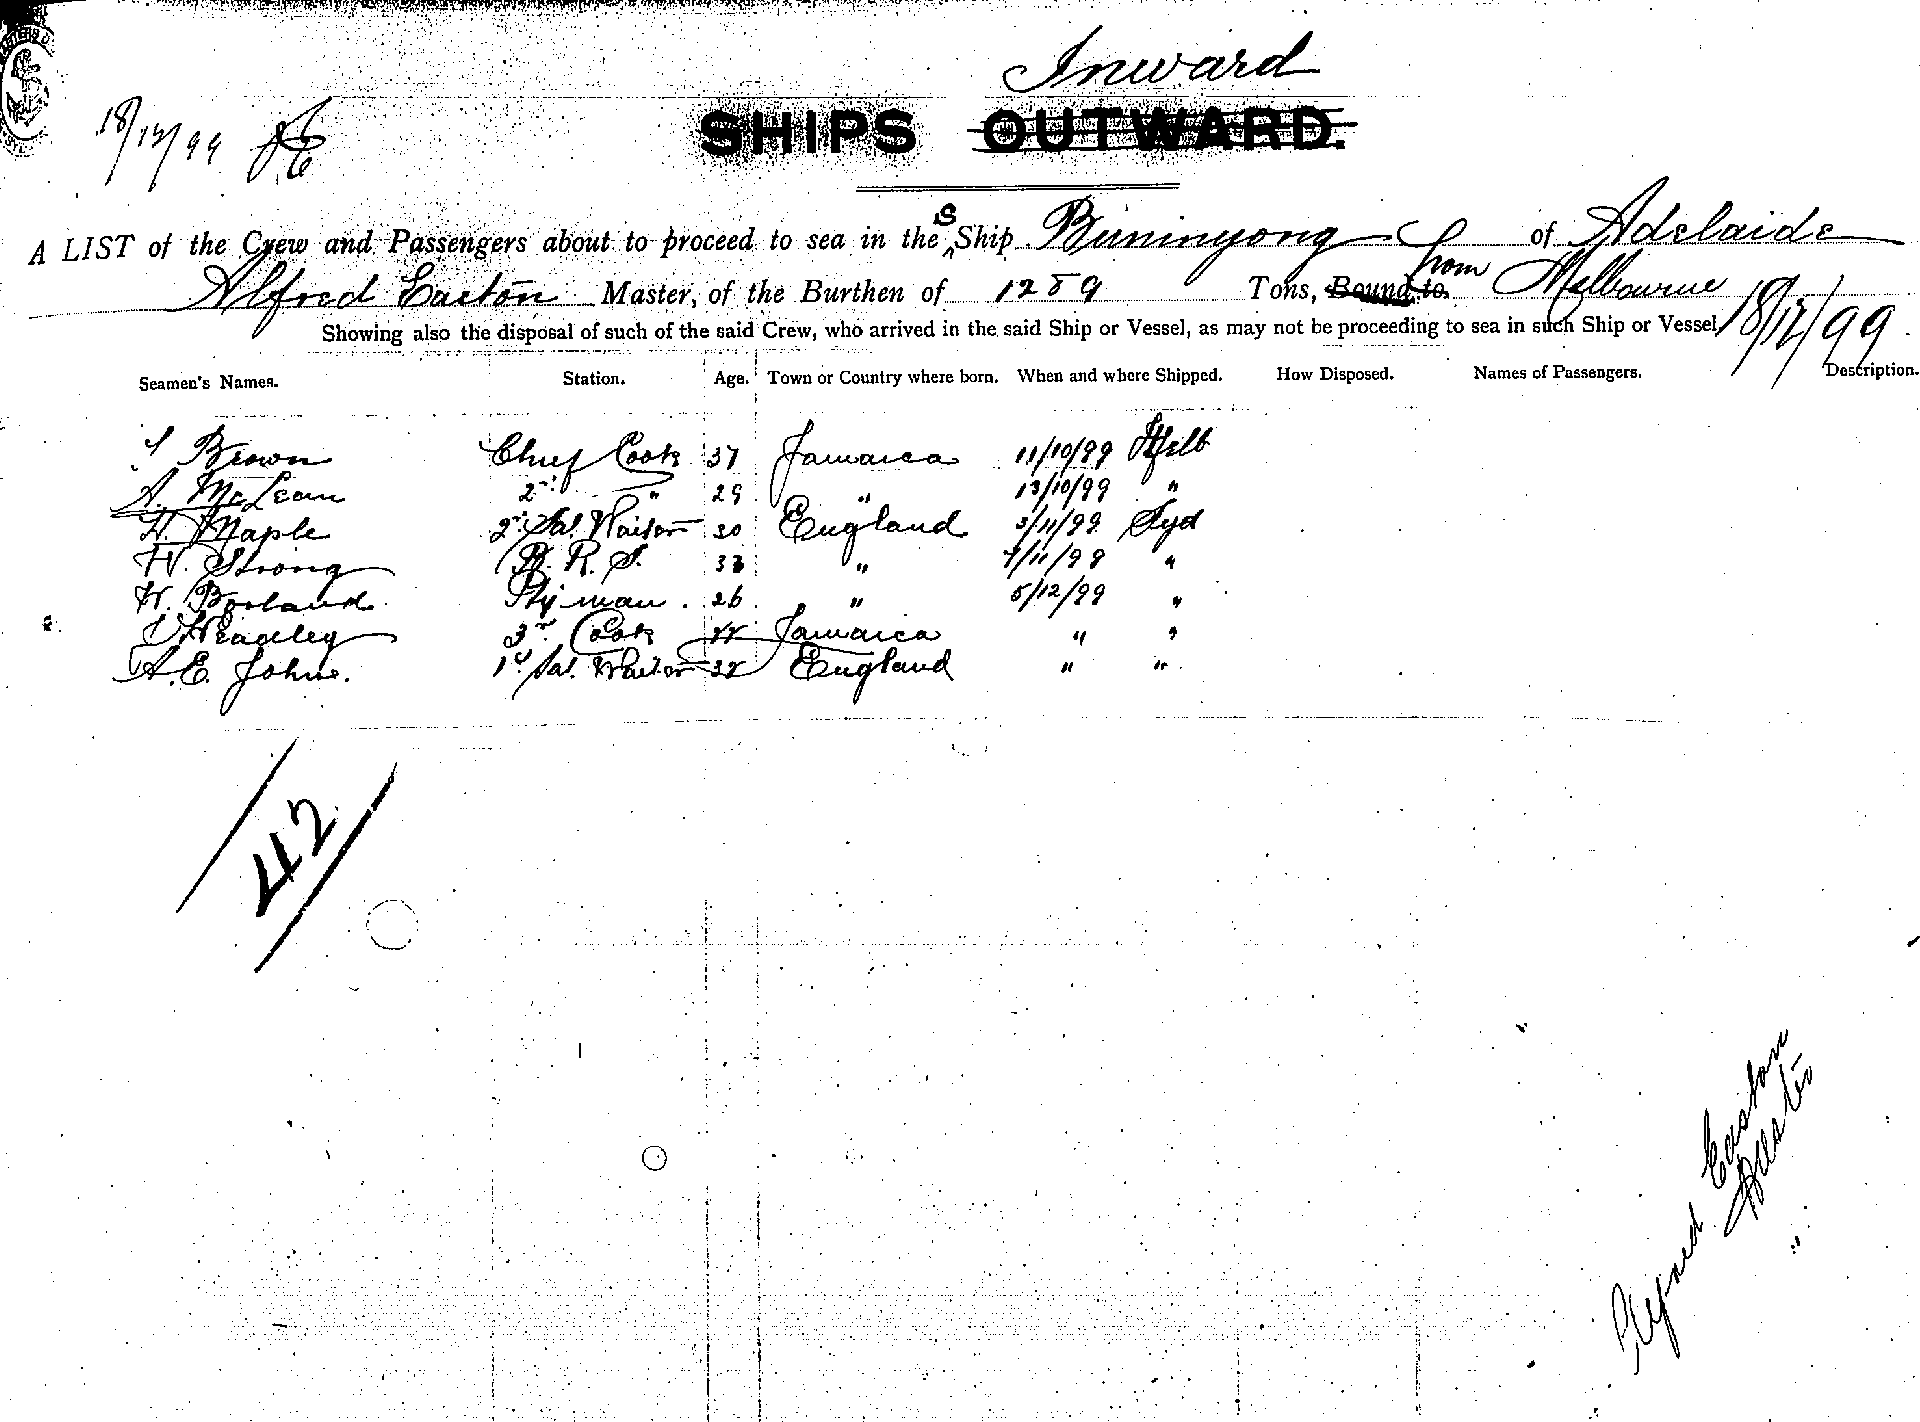 Inward
18/12/99 AE
SHIPS OUTWARD.
A LIST of the Crew and Passengers about to proceed to sea in the S Ship Buninyong of Adelaide
Alfred Easton Master, of the Burthen of 1289 Tons, Bound to from Melbourne 18/12/99
Showing also the disposal of such of the said Crew, who arrived in the said Ship or Vessel, as may not be proceeding to sea in such Ship or Vessel
Seamen's Names. Station. Age. Town or Country where born. When and where Shipped. How Disposed. Names of Passengers. Description.
Brown Chief Cook 37 Jamaica 11/10/99 Melb
A. McLean 2nd " 29 " 13/10/99 "
H. Maple 2nd Sal. Waiter 30 England 3/11/99 Syd
W. Strong B. R. S. 33 " 7/11/99 "
W. Borland Ptyman. 26 " 5/12/99 "
Headley 3rd Cook 22 Jamaica " "
A. E. Johns. 1st Sal. Waiter 32 England " "
42
Alfred Easton
Master